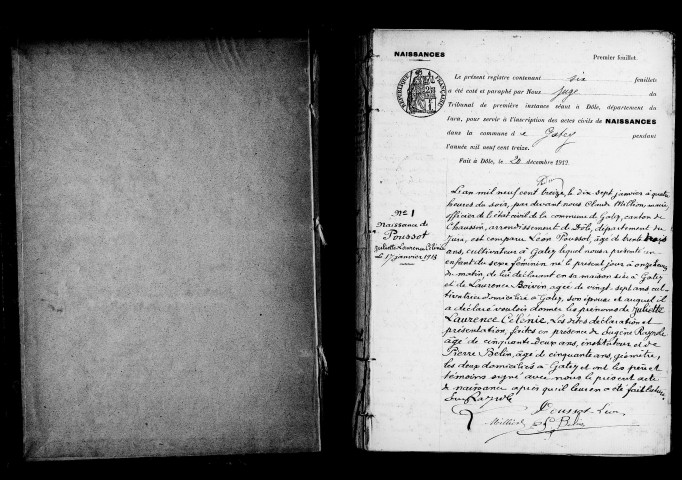 NAISSANCES
Premier feuillet.
Le présent registre contenant six feuillets
a été coté et paraphé par Nous Juge du
Tribunal de première instance séant à Dôle, département du
Jura, pour servir à l'inscription des actes civils de NAISSANCES
dans la commune d e Gatey pendant
l'année mil neuf cent treize.
Fait à Dôle, le 20 décembre 1912
RÉPUBLIQUE FRANÇAISE
N° 1
Naissance de
Poussot
Juliette Laurence Célénie
le 17 janvier 1913
L'an mil neuf cent treize, le dix sept janvier à quatre
heures du soir, par devant nous Claude Million, maire,
officier de l'état civil de la commune de Gatey, canton de
Chaussin, arrondissement de Dôle, département du
Jura, est comparu Léon Poussot, âgé de trente trois
ans, cultivateur à Gatey lequel nous a présenté un
enfant du sexe féminin né le présent jour à onze heures
du matin, de lui déclarant en sa maison sise à Gatey
et de Laurence Boivin, âgée de vingt sept ans cul-
tivatrice domiciliée à Gatey, son épouse et auquel il
a déclaré vouloir donner les prénoms de Juliette
Laurence Célénie. Les dites déclaration et
présentation, faites en présence de Eugène
âgé de cinquante deux ans, instituteur et de
Pierre Belin, âgé de cinquante ans, géomètre,
les deux domiciliés à Gatey et ont les père et
témoins signé avec nous le présent acte
de naissance après qu'il leur en a été fait lecture.
Poussot Léon
Million P. Belin